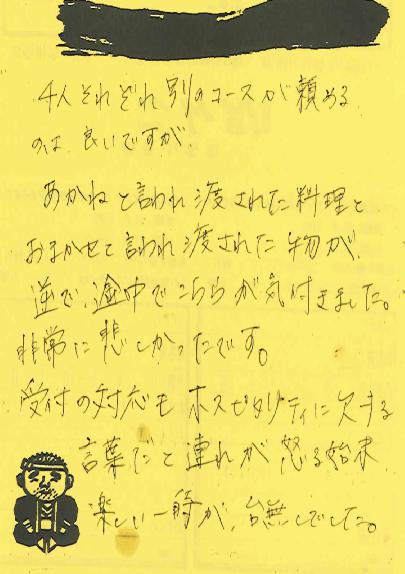 4人それぞれ別のコースが頼める
のは良いですが、
あかねと言われ渡された料理と
おまかせと言われ渡された物が、
逆で、途中でこちらが気付きました。
非常に悲しかったです。
受付の対応もホスピタリティに欠する
言葉だと連れが怒る始末、
楽しい一時が、台無しでした。